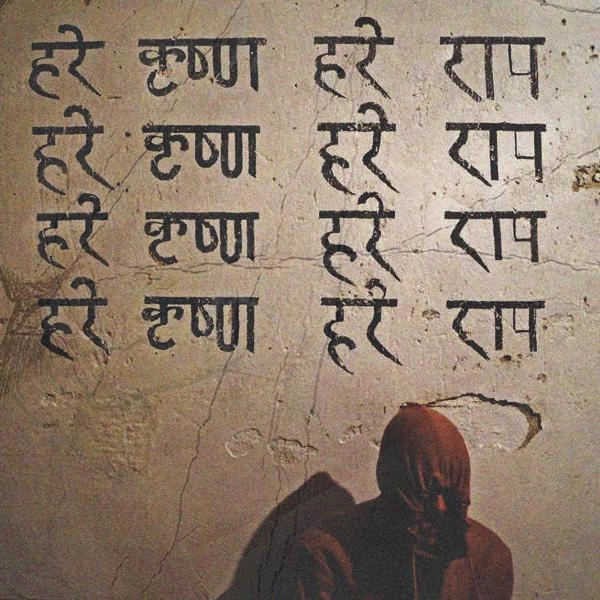 हरे कृष्ण हरे राप
हरे कृष्ण हरे राप
हरे कृष्ण हरे राप
हरे कृष्ण हरे राप